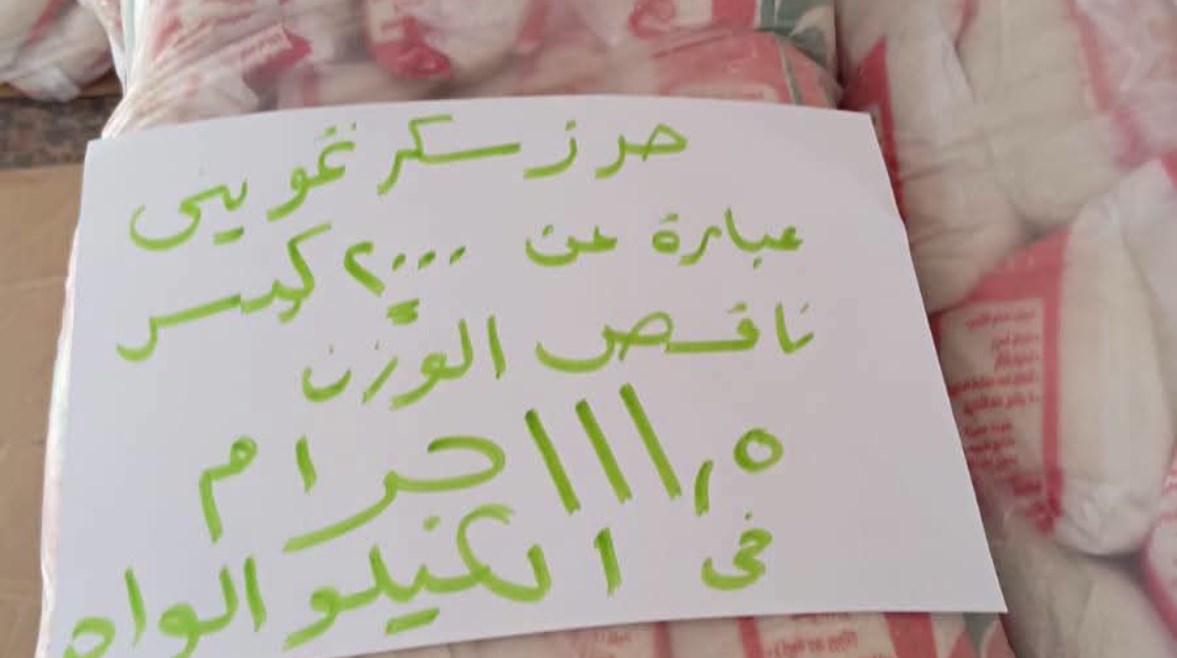 حرز سكر تمويني
عبارة عن ٢٠٠٠ كيس
ناقص الوزن
١١١,٥ جرام
فى الكيلو الواح